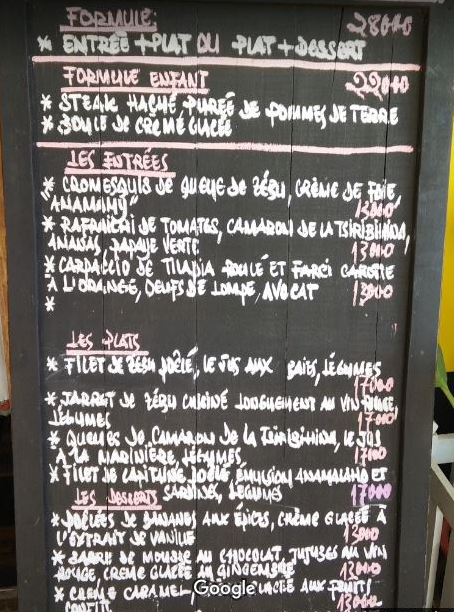 FORMULE: 28000
* ENTRÉE + PLAT OU PLAT + DESSERT
FORMULE ENFANT 22000
* STEAK HACHÉ PURÉE DE POMMES DE TERRE
* BOULE DE CRÈME GLACÉE
LES ENTRÉES
* CROMESQUIS DE QUEUE DE ZÉBU, CRÈME DE FOIE
"ANAMAMY" 13000
* RAFRAICHI DE TOMATES, CAMARON DE LA TSIRIBIHINA,
ANANAS, PAPAYE VERTE 13000
* CARPACCIO DE TILAPIA ROULÉ ET FARCI CAROTTE
À L'ORANGE, OEUFS DE LOMPE, AVOCAT 13000
*
LES PLATS
* FILET DE ZÉBU POÊLÉ, LE JUS AUX BAIES, LÉGUMES
17000
* JARRET DE ZÉBU CUISINÉ LONGUEMENT AU VIN ROUGE,
LÉGUMES 17000
* QUEUES DE CAMARON DE LA TSIRIBIHINA, LE JUS
À LA MARINIÈRE, LÉGUMES 17000
* FILET DE CAPITAINE POÊLÉ ÉMULSION ANAMALAHO ET
LES DESSERTS SARDINES, LÉGUMES 17000
* POÊLÉES DE BANANES AUX ÉPICES, CRÈME GLACÉE À
L'EXTRAIT DE VANILLE 13000
* BARRE DE MOUSSE AU CHOCOLAT, JUJUBES AU VIN
ROUGE, CRÈME GLACÉE AU GINGEMBRE 13000
* CRÈME CARAMEL, GLACÉE AUX FRUITS
CONFITS 13000
Google